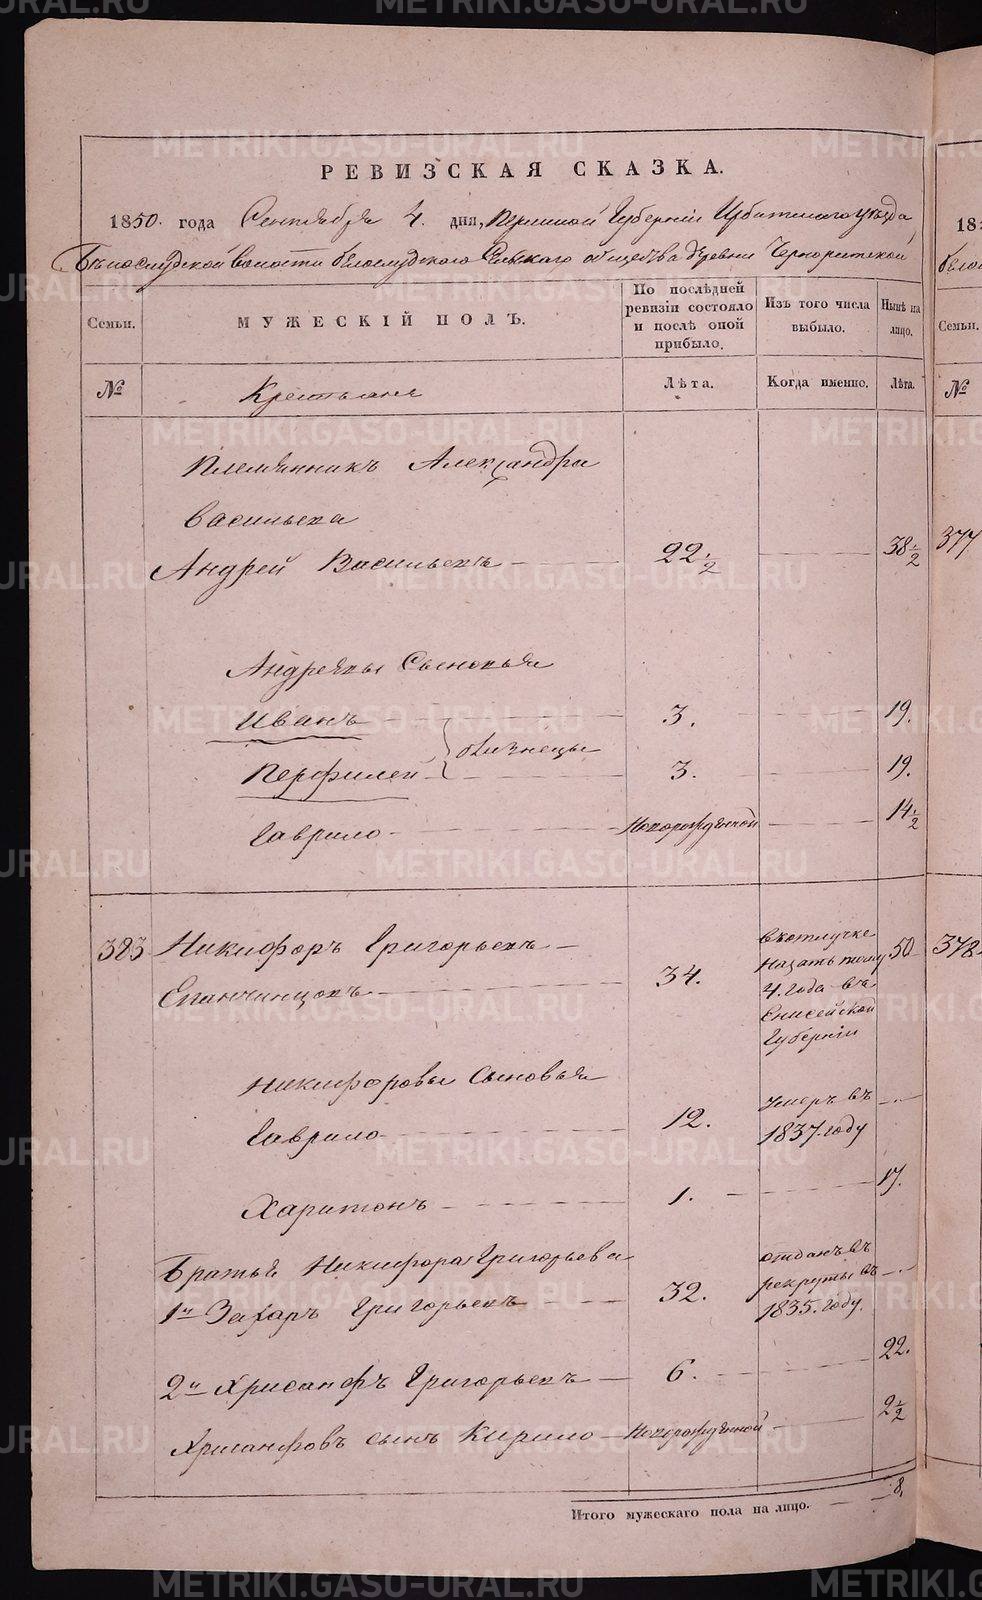 РЕВИЗСКАЯ СКАЗКА.
1850. года Сентября 4. дня, Пермской Губернiи Ирбитского уѣзда
Бѣлослудской волости Бѣлослудского Сельскаго общества деревни
Семьи.
МУЖЕСКIЙ ПОЛЪ.
По послѣдней ревизiи состояло и послѣ оной прибыло.
Изъ того числа выбыло.
Нынѣ на лицо.
№
Крестьянъ
Лѣта.
Когда именно.
Лѣта.
Племянникъ Александра
Васильева
Андрей Васильевъ 22 1/2 38 1/2
Андреевы Сыновья
Иванъ 3. 19.
близнецы
Перфилей 3. 19.
Гаврило Новорожденной 14 1/2
323 Никифоръ Григорьевъ
Епанчинцовъ 34. 50
в отлучке
назатъ тому
4. года въ
Енисейской
Губернiи
Никифоровы Сыновья
Гаврило 12.
Умеръ въ
1837. году
Харитонъ 1. 17.
Братья Никифора Григорьева
1й Захаръ Григорьевъ 32.
отданъ въ
рекруты въ
1835. году.
2й Хрисанфъ Григорьевъ 6. 22.
Хрисанфовъ сынъ Кирило Новорожденной 2 1/2
Итого мужескаго пола на лицо. 8.
18
Семьи.
№
377
378
METRIKI.GASO-URAL.RU